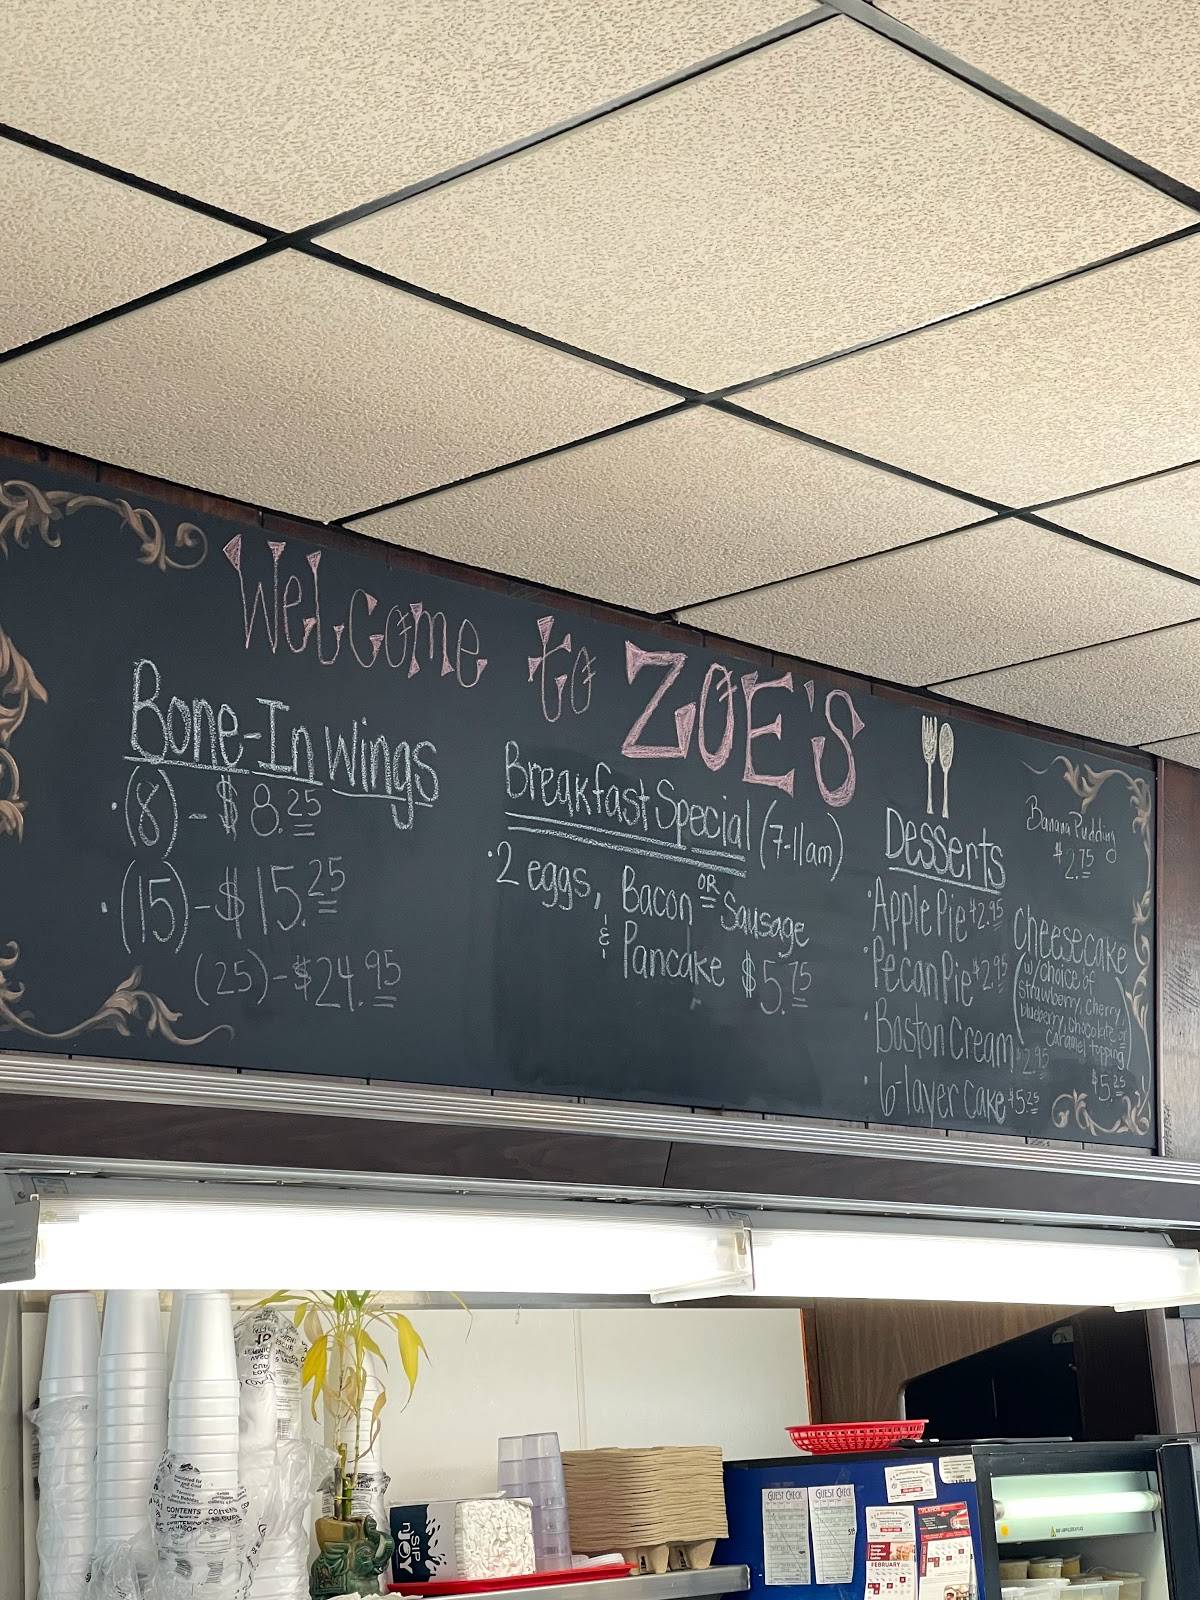 Welcome to ZOE'S
Bone-In Wings
·(8)-$8.25
·(15)-$15.25
(25)-$24.95
Breakfast Special (7-11am)
·2 eggs, Bacon OR Sausage
& Pancake $5.75
Desserts
·Apple Pie $2.95
·Pecan Pie $2.95
·Boston Cream $2.95
·6-layer Cake $5.25
Banana Pudding
$2.75
Cheesecake
(w/choice of
strawberry, cherry,
blueberry, chocolate or
caramel topping)
$5.25
SIP
nJOY
GUEST CHECK
GUEST CHECK
FEBRUARY
CONTENTS